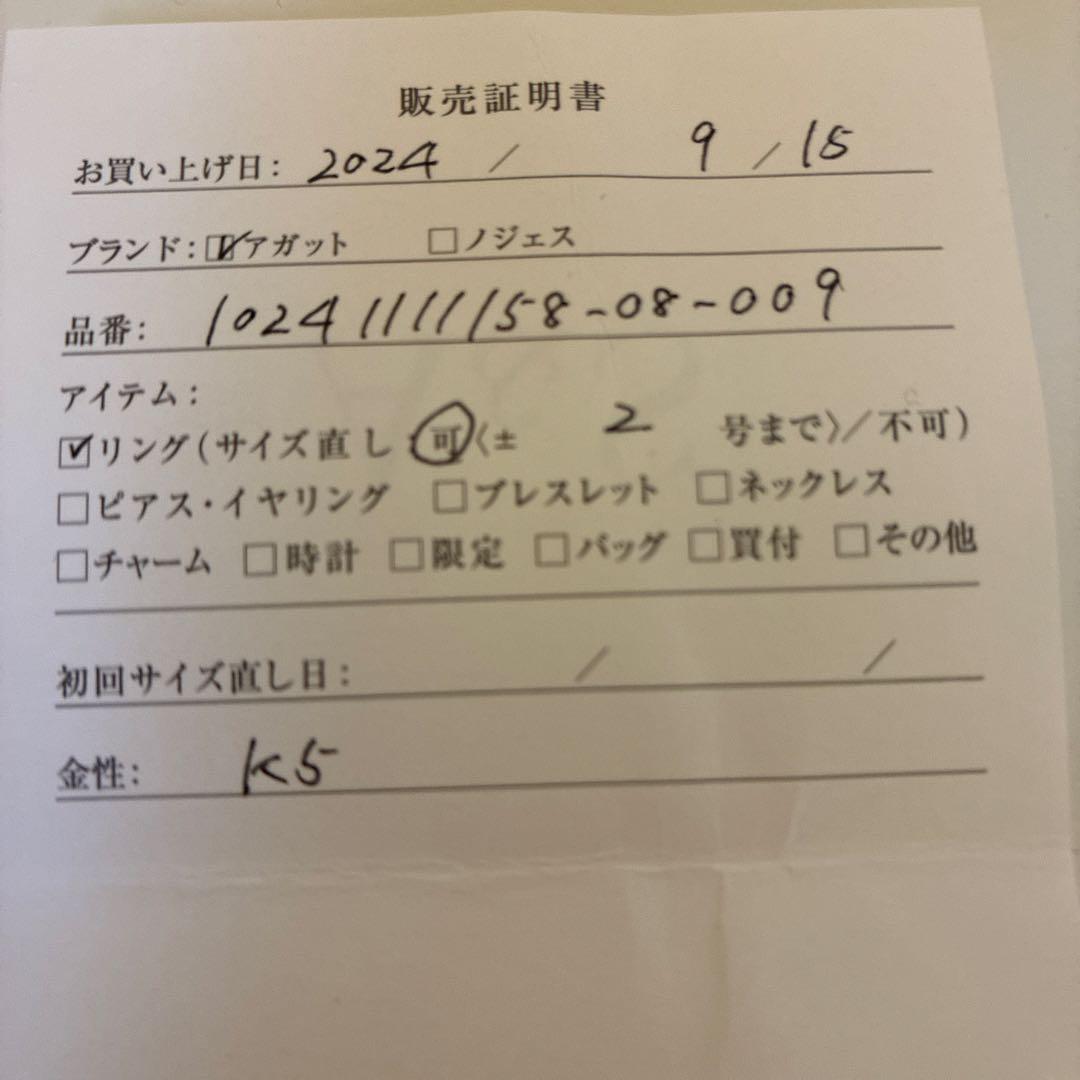 販売証明書
お買い上げ日: 2024 / 9 / 15
ブランド: ☑アガット □ノジェス
品番: 10241111158-08-009
アイテム:
☑リング(サイズ直し 可〈± 2 号まで〉/不可)
□ピアス・イヤリング □ブレスレット □ネックレス
□チャーム □時計 □限定 □バッグ □買付 □その他
初回サイズ直し日: / /
金性: K5